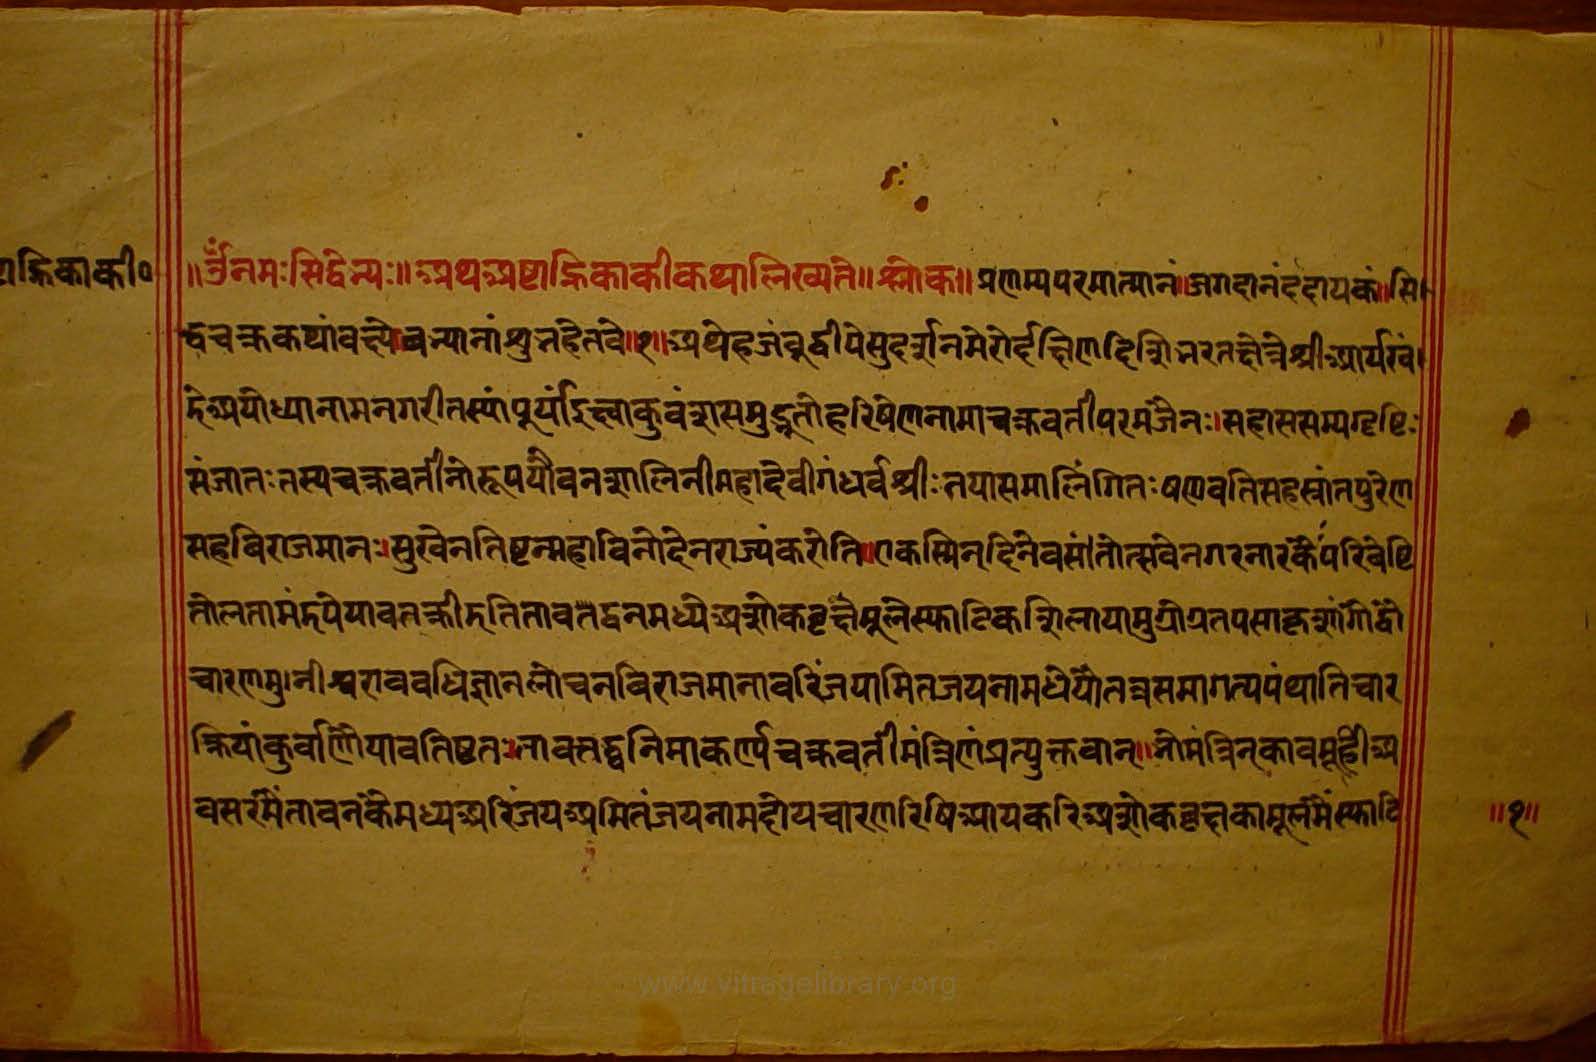 ह्निकाकी०
॥ॐनमःसिद्धेभ्यः॥अथअष्टाह्निकाकीकथालिख्यते॥श्लोक॥प्रणम्यपरमात्मानं॥जगदानंददायकं॥सि
द्धचक्रकथांवक्ष्येभव्यानांशुभहेतवे॥१॥अथेहजंबुद्वीपेसुदर्शनमेरोर्दक्षिणदिशिभरतक्षेत्रेश्रीआर्यखं
डेअयोध्यानामनगरीतस्यांपूर्यांइक्ष्वाकुवंशसमुद्भूतोहरिषेणनामाचक्रवर्तीपरमजैनः॥सहाससम्यग्दृष्टिः
संजातःतस्यचक्रवर्तीनोरूपयौवनशालिनीमहादेवीगंधर्वश्रीःतयासमालिंगितःषणवतिसहस्त्रांतपुरेण
सहबिराजमानः॥सुखेनतिष्टन्महाविनोदेनराज्यंकरोति॥एकस्मिन्दिनेवसांतोत्सवेनगरनारकैपरिवेष्टि
तोलतामंडपेयावतक्रीडतितावतद्वनमध्येअशोकवृक्षमूलेस्फाटिकशिलायामुग्रोग्रतपसाकृशांगौद्वौ
चारणमुनीश्वराववधिज्ञानलोचनबिराजमानावरिंजयामितजयनामधेयौतत्रसमागत्यपंथातिचार
क्रियांकुर्वाणौयावतिष्ठतः॥तावत्तद्ध्वनिमाकर्ण्यचक्रवर्तीमंत्रिणंप्रत्युक्तवान्॥भोमंत्रिन्कावमूहौअ
वसरमैंतावनकेमध्यअरिंजयअमितंजयनामदोयचारणरिषिआयकरिअशोकवृक्षकामूलमैंस्फाटि
॥१॥
www.vitragelibrary.org